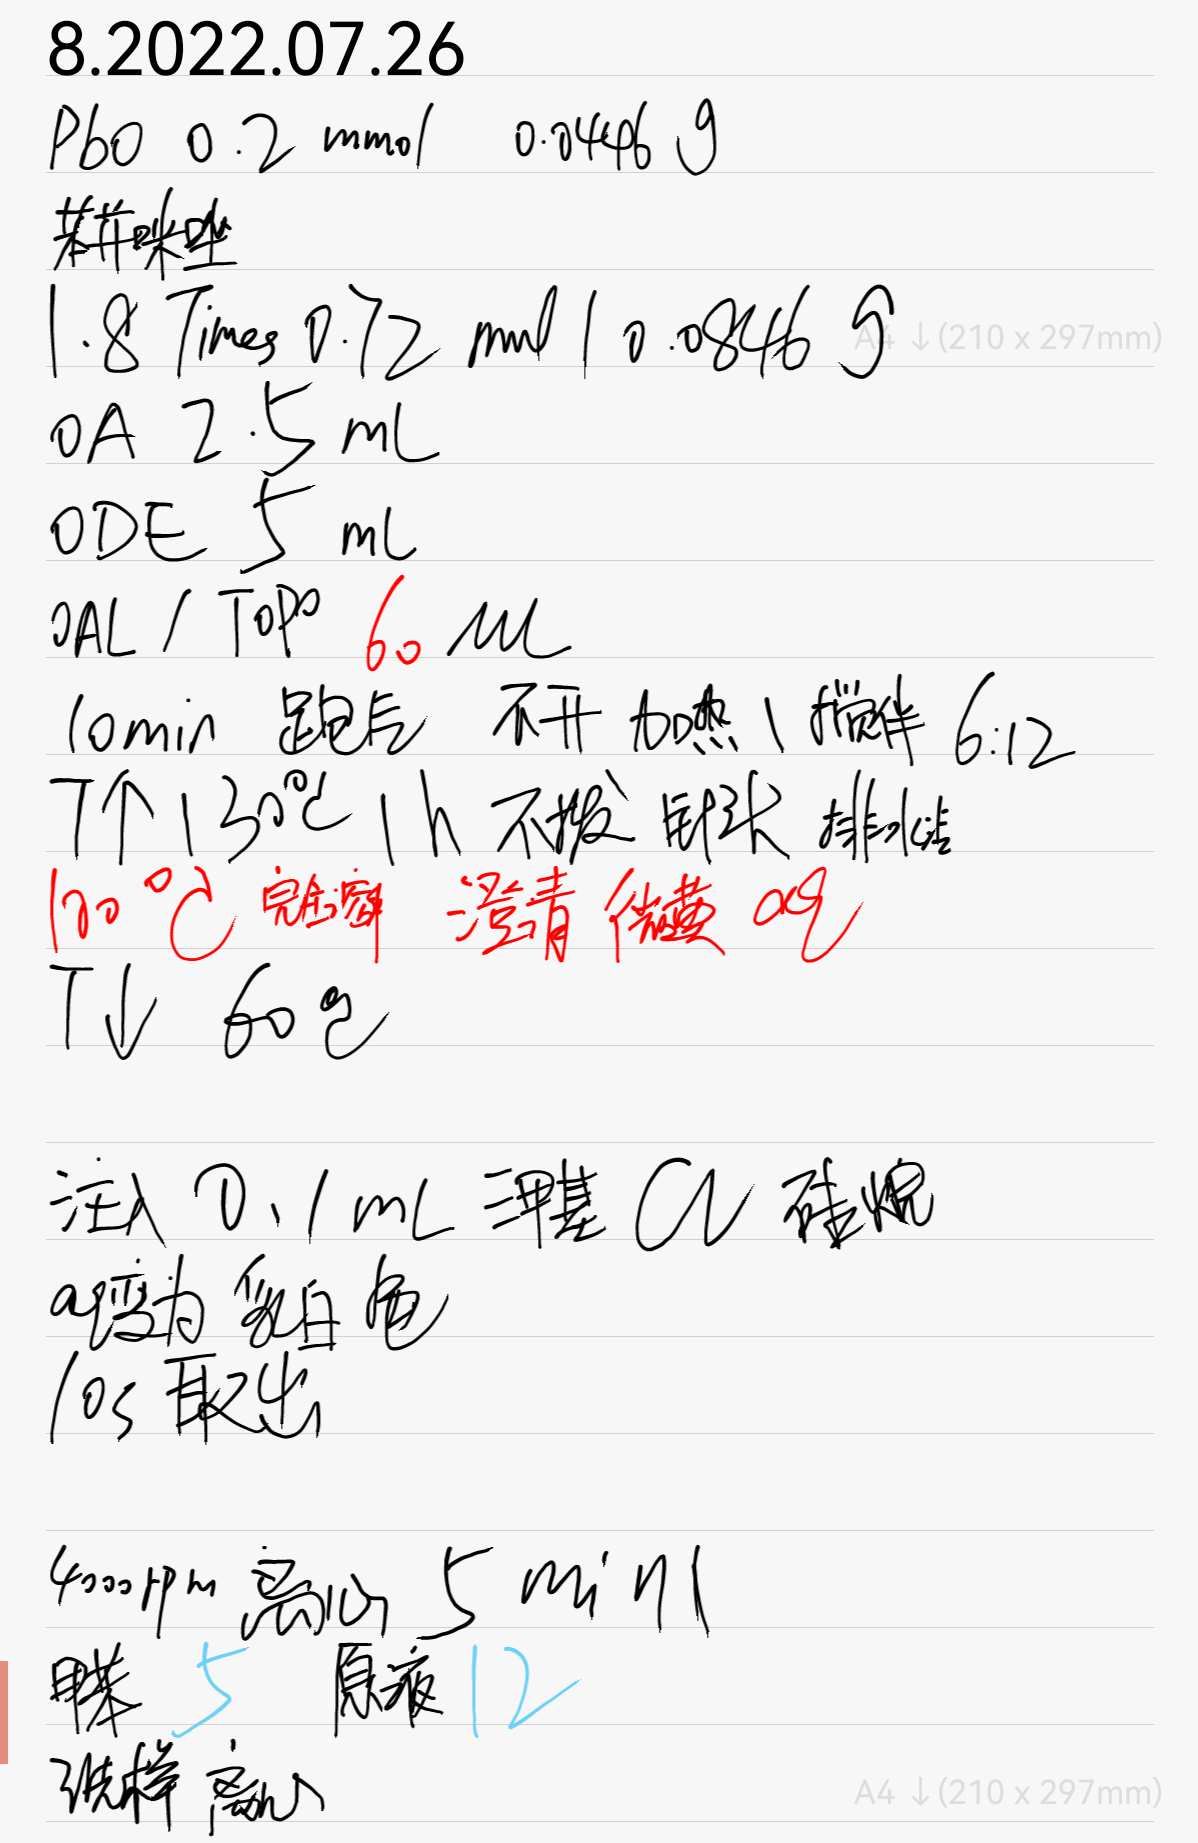 8.2022.07.26
PbO 0.2 mmol 0.0446 g
苯并咪唑
1.8 Times 0.72 mmol | 0.0846 g
A4 ↓(210 x 297mm)
OA 2.5 mL
ODE 5 mL
OAL / TOPO 60 μL
10min 跑气 不开加热 | 搅拌 6:12
T↑ 130℃ 1h 不拨针头 排水洁
100℃ 完全溶解 澄清 微黄 aq
T↓ 60℃
注入 0.1 mL 三甲基 Cl 硅烷
aq变为乳白色
10s 取出
4000rpm 离心 5 min |
甲苯 5 原液 12
洗样 离心
A4 ↓(210 x 297mm)